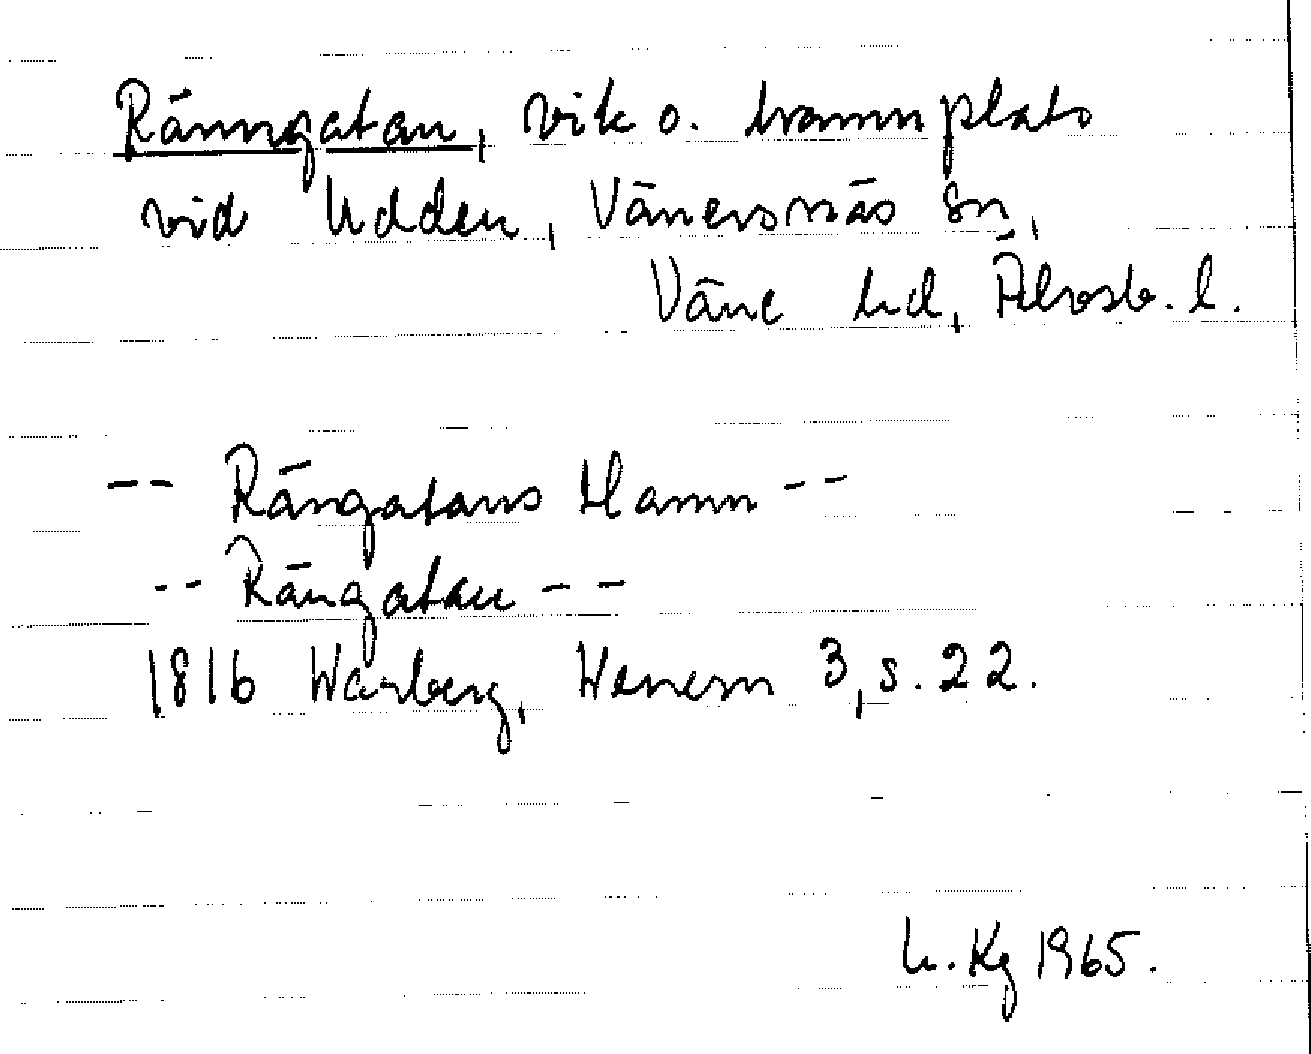 Ränngatan, vik o. hamnplats
vid Udden, Vänersnäs sn,
Väne hd, Älvsb. l.
-- Rängatans Hamn --
-- Rängatan --
1816 Warberg, Wenern 3, s. 22.
h. Kg 1965.